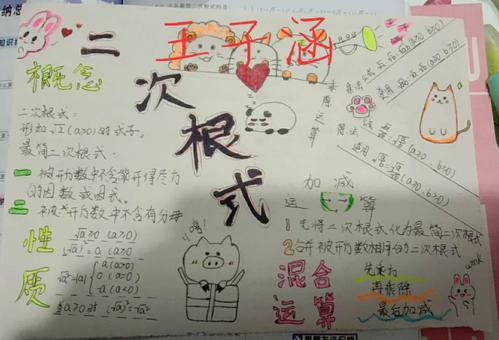 王子涵
二次根式
概念
二次根式:
形如√a(a≥0)的式子。
最简二次根式:
一 被开方数中不含能开得尽方
的因数或因式。
二 被开方数中不含有分母
性质
√a≥0 (a≥0)
(√a)²=a (a≥0)
√a²=|a| { a (a>0)
0 (a=0)
-a (a<0)
当a≥0时 (√a)²=√a²
乘除运算
乘法
除法
加减
运算
1 先将二次根式化为最简二次根式
2 合并被开方数相同的二次根式
混合运算
先乘方
再乘除
最后加减